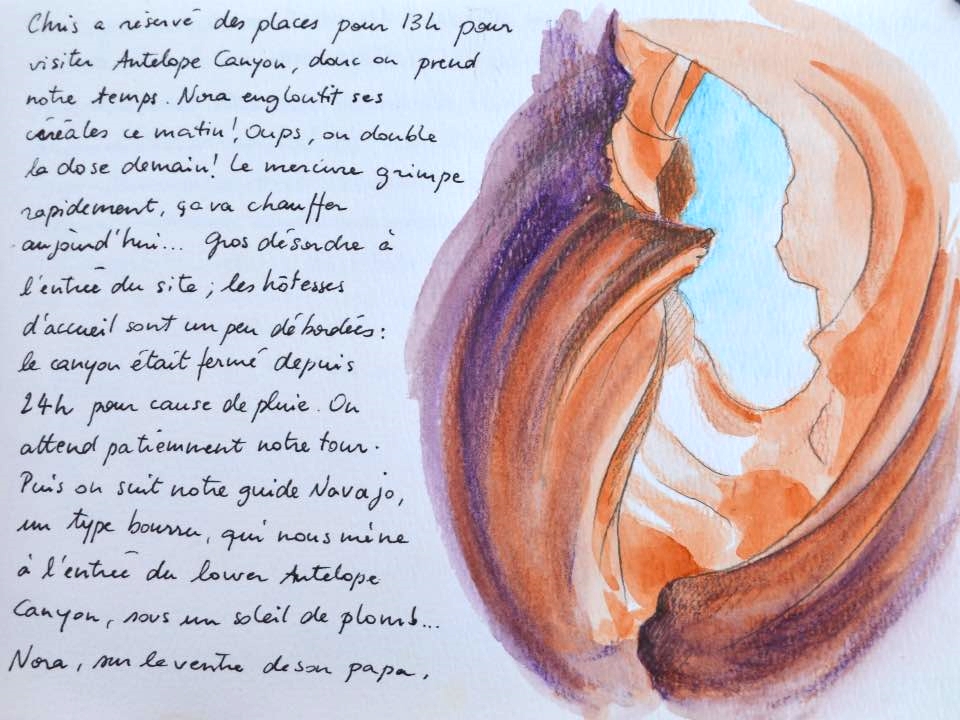 Chris a réservé des places pour 13h pour
visiter Antelope Canyon, donc on prend
notre temps. Nora engloutit ses
céréales ce matin! Oups, on double
la dose demain! Le mercure grimpe
rapidement, ça va chauffer
aujourd'hui... Gros désordre à
l'entrée du site; les hôtesses
d'accueil sont un peu débordées:
le canyon était fermé depuis
24h pour cause de pluie. On
attend patiemment notre tour.
Puis on suit notre guide Navajo,
un type bourru, qui nous mène
à l'entrée du lower Antelope
Canyon, sous un soleil de plomb...
Nora, sur le ventre de son papa,